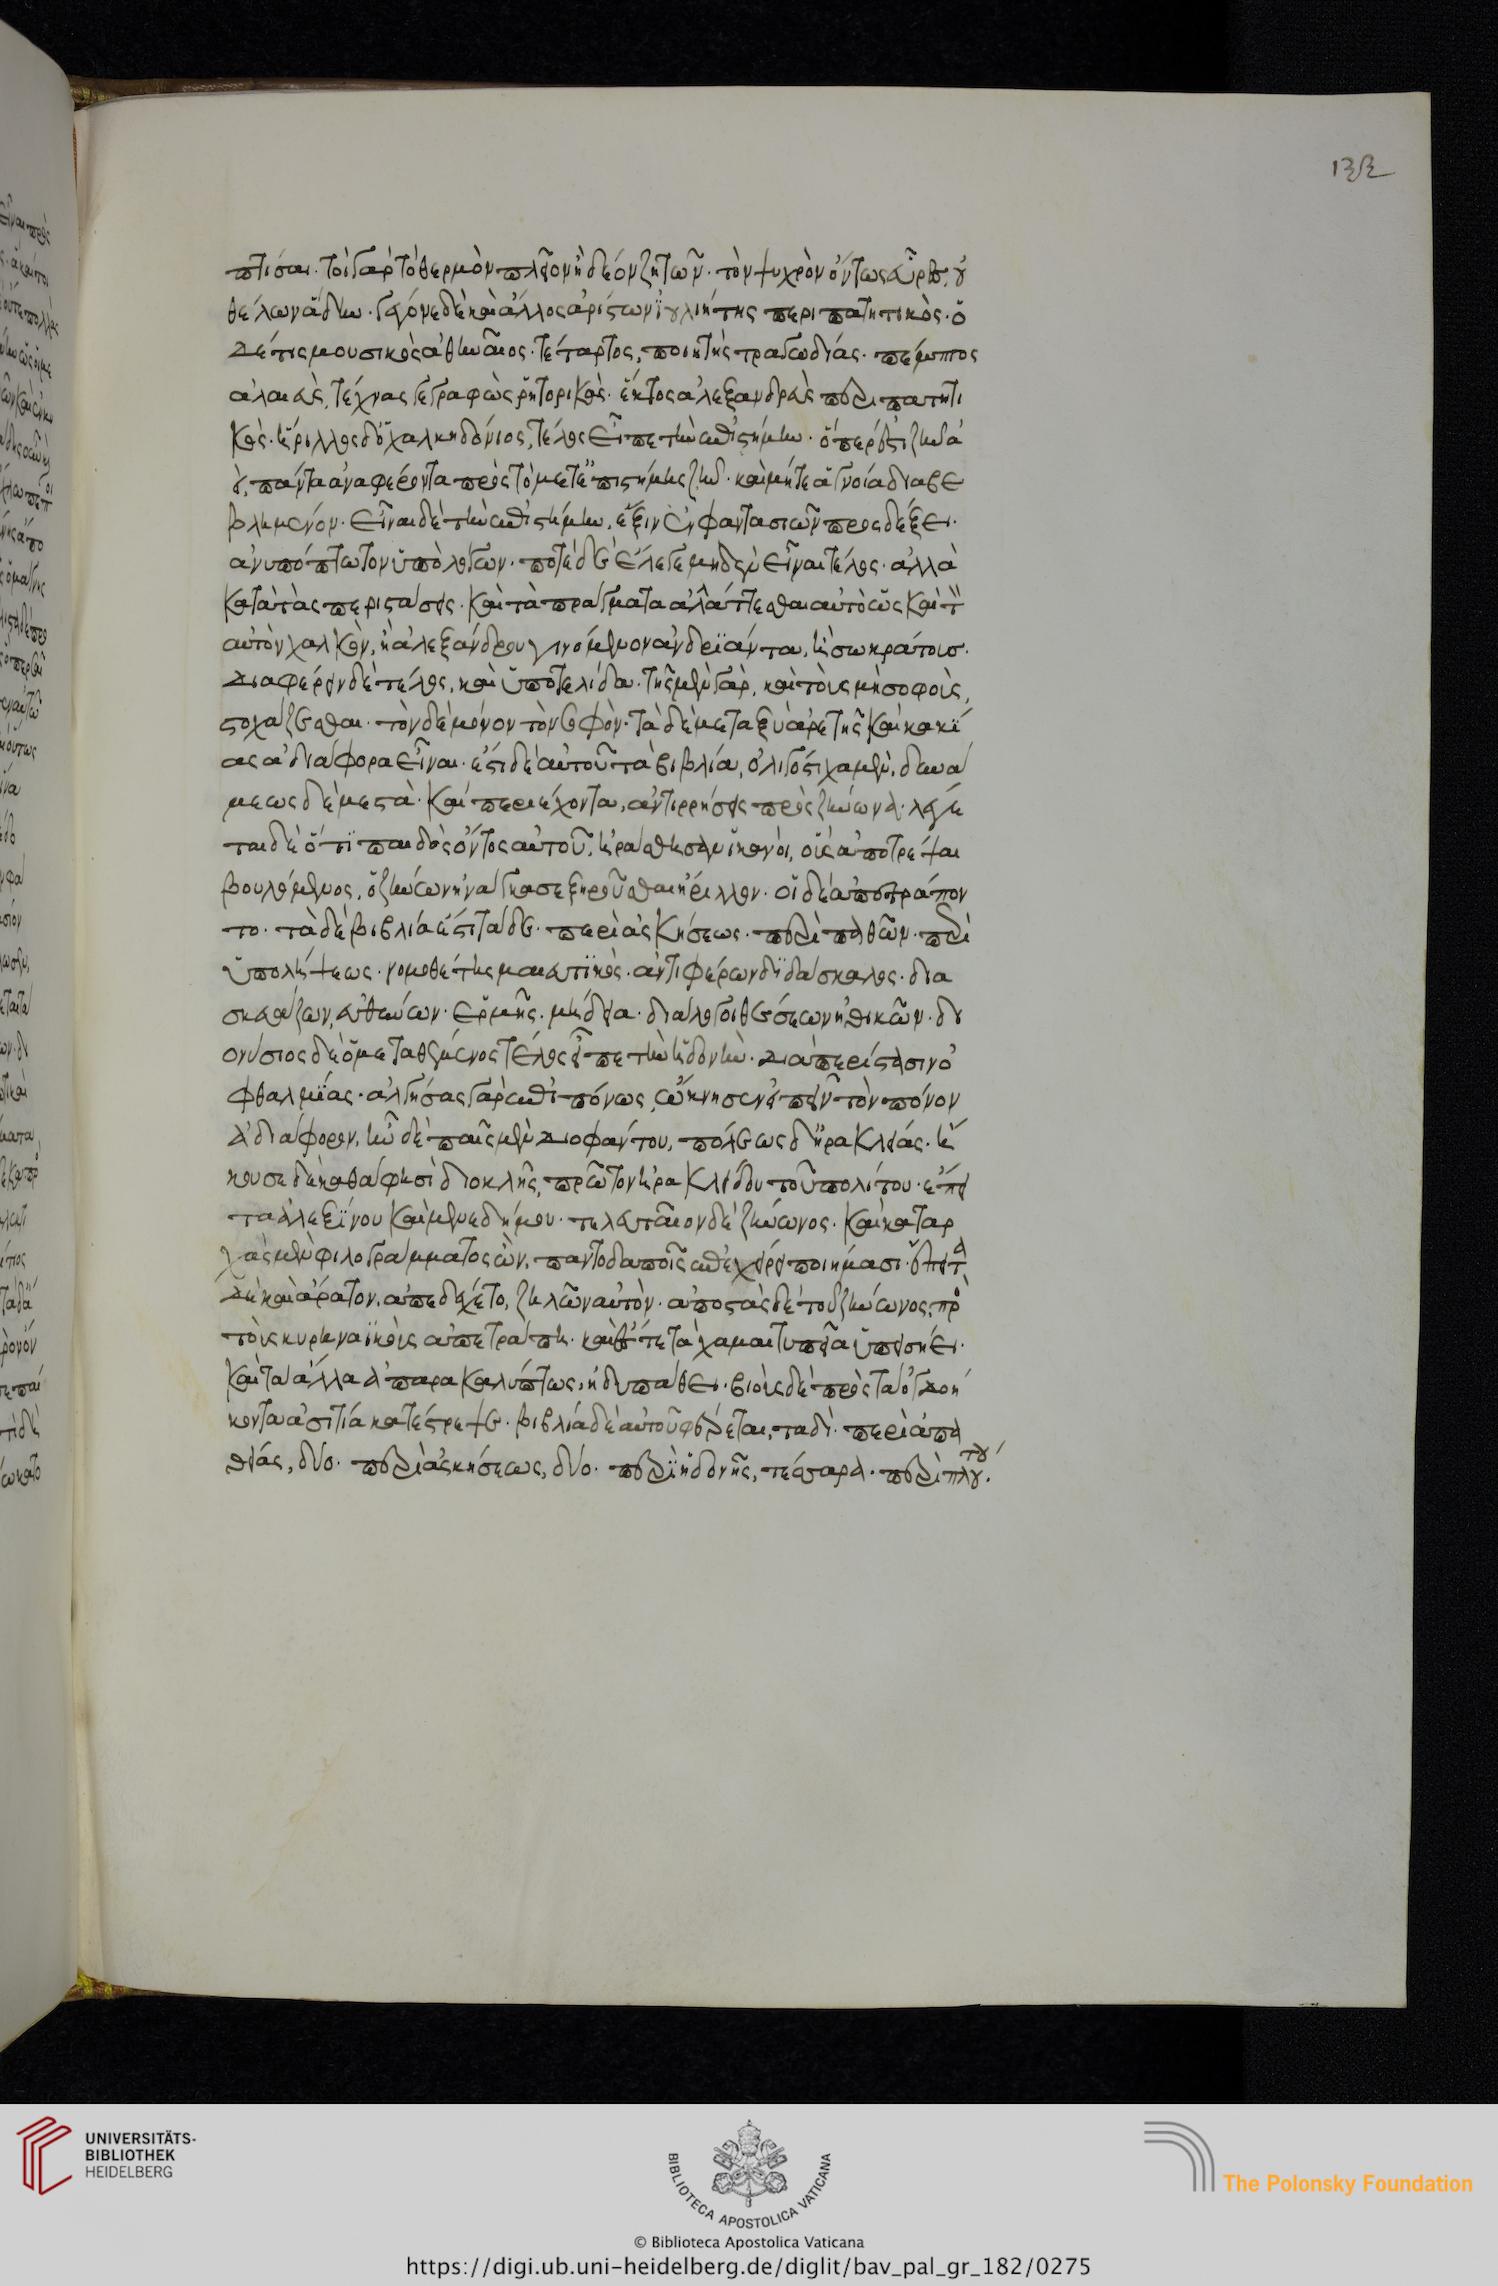 πτίσαι. τοὶ γὰρ τὸ θερμὸν πλεῖον ἢ δέον ζητῶν. τὸν ψυχρὸν ὄντως εὗρεν, οὐ
θέλων ἅδην. γέγονε δὲ καὶ ἄλλος ἀρίστων ἰουλιήτης περιπατητικός. ὁ
δέ τις μουσικὸς ἀθηναῖος. τέταρτος, ποιητὴς τραγωδίας. πέμπτος
ἁλαιεὺς, τέχνας γεγραφὼς ῥητορικάς. ἕκτος ἀλεξανδρεὺς περιπατητι
κός. ἥριλλος δ' ὁ χαλκηδόνιος, τέλος εἶπε τὴν ἐπιστήμην. ὅπερ ἐστὶ ζῆν ἀ
εὶ, πάντα ἀναφέροντα πρὸς τὸ μετ' ἐπιστήμης ζῆν. καὶ μήτε ἀγνοία διαβε
βλημένον. εἶναι δὲ τὴν ἐπιστήμην, ἕξιν ἐν φαντασιῶν προσδέξει.
ἀνυπόπτωτον ὑπὸ λόγων. ποτὲ δὲ ἔλεγε μηδὲν εἶναι τέλος. ἀλλὰ
κατὰ τὰς περιστάσεις. καὶ τὰ πράγματα ἀλάττεσθαι αὐτὸ ὡς καὶ τὸν
αὐτὸν χαλκὸν, ἢ ἀλεξάνδρου γινόμενον ἀνδριάντα, ἢ σωκράτους.
διαφέρειν δὲ τέλος, καὶ ὑποτελίδα. τῆς μὲν γὰρ, καὶ τοὺς μὴ σοφοὺς,
στοχάζεσθαι. τὸν δὲ μόνον τὸν σοφόν. τὰ δὲ μεταξὺ ἀρετῆς καὶ κακί
ας ἀδιάφορα εἶναι. ἔστι δὲ αὐτοῦ τὰ βιβλία, ὀλιγόστιχα μὲν, δυνά
μεως δὲ μεστὰ. καὶ περιέχοντα, ἀντιρρήσεις πρὸς ζήνωνα. λέγε
ται δὲ ὅτι παιδὸς ὄντος αὐτοῦ, ἠράσθησαν ἱκανοὶ, οὓς ἀποτρέψαι
βουλόμενος, ὁ ζήνων ἠνάγκασε ξηροῦσθαι ἥριλλον. οἱ δὲ ἀπετράπον
το. τὰ δὲ βιβλία ἐστὶ τάδε. περὶ ἀσκήσεως. περὶ παθῶν. περὶ
ὑπολήψεως. νομοθέτης μαιευτικὸς. ἀντιφέρων διδάσκαλος. δια
σκευάζων, εὐθύνων. ἑρμῆς. μήδεια. διάλογοι θέσεων ἠθικῶν. δι
ονύσιος δὲ ὁ μεταθέμενος τέλος εἶπε τὴν ἡδονὴν. διὰ περίστασιν ὀ
φθαλμίας. ἀλγήσας γὰρ ἐπιπόνως, ὤκνησεν εἰπεῖν τὸν πόνον
ἀδιάφορον, ἦν δὲ παῖς μὲν διοφάντου, πόλεως δ' ἡρακλείας. ἤ
κουσε δὲ καθά φησι διοκλῆς, πρῶτον ἡρακλείδου τοῦ πολίτου. ἔπει
τα ἀλεξίνου καὶ μενεδήμου. τελευταῖον δὲ ζήνωνος. καὶ καταρ
χὰς μὲν φιλογράμματος ὢν, παντοδαποῖς ἐπεχείρει ποιήμασι. ἔπειτα
δὲ καὶ ἄρατον, ἀπεδέχετο, ζηλῶν αὐτὸν. ἀποστὰς δὲ τοῦ ζήνωνος, πρὸ
τοὺς κυρηναϊκοὺς ἀπετράπη. καὶ εἴς τε τὰ χαμαιτυπεῖα ὑπεισήει.
καὶ τὰ ἄλλα ἀπαρακαλύπτως, ἡδυπάθει. βιοὺς δὲ πρὸς τὰ ὀγδοή
κοντα ἀσιτία κατέστρεψε. βιβλία δὲ αὐτοῦ φέρεται, τάδε. περὶ ἀπα
θείας, δύο. περὶ ἀσκήσεως, δύο. περὶ ἡδονῆς, τέσσαρα. περὶ πλούτου.
UNIVERSITÄTS-
BIBLIOTHEK
HEIDELBERG
BIBLIOTECA APOSTOLICA VATICANA
The Polonsky Foundation
© Biblioteca Apostolica Vaticana
https://digi.ub.uni-heidelberg.de/diglit/bav_pal_gr_182/0275